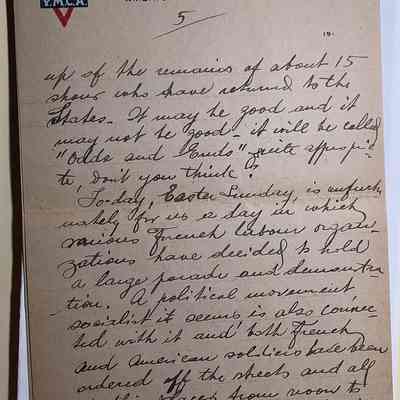 Y.M.C.A.
5
19
up of the remains of about 15
shows who have returned to the
States. It may be good and it
may not be good - it will be called
"Odds and Ends" - quite appropri-
te, don't you think?
To-day, Easter Sunday, is unfortu-
nately for us a day in which
various French labour organ-
zations have decided to hold
a large parade and demonstra-
tion. A political movement
socialist it seems is also connec-
ted with it and both French
and American soldiers have been
ordered off the streets and all
places from noon to